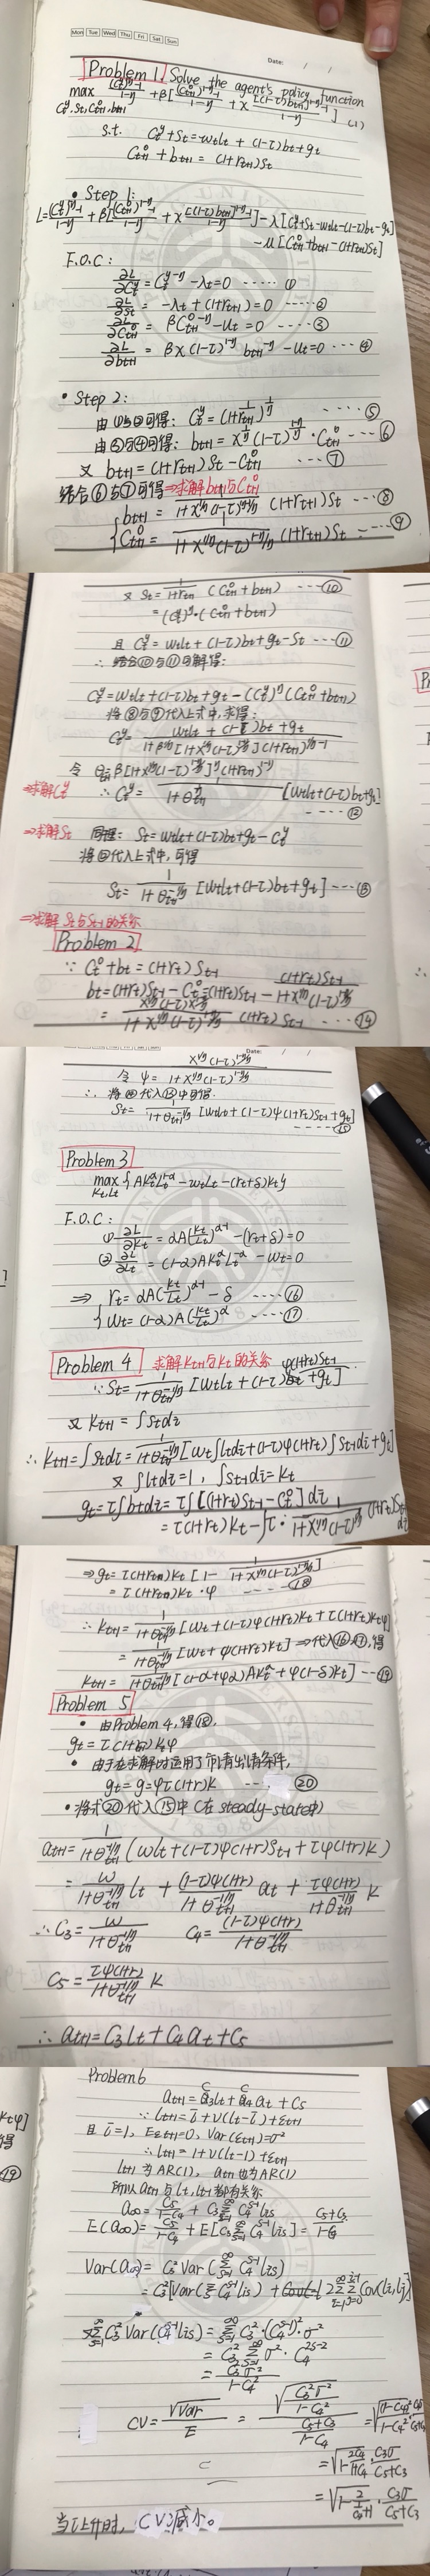 Mon Tue Wed Thu Fri Sat Sun
Date: / /
Problem 1. Solve the agent's policy function
max (Cty)^1-η-1/1-η + β[(Ct+1o)^1-η-1/1-η + χ [(1-τ)bt+1]^1-η-1/1-η] (1)
Cty, St, Ct+1o, bt+1
s.t. Cty+St=wtlt+(1-τ)bt+gt
Ct+1o+bt+1=(1+rt+1)St
• Step 1:
L=(Cty)^1-η-1/1-η + β[(Ct+1o)^1-η-1/1-η + χ [(1-τ)bt+1]^1-η-1/1-η] -λ[Cty+St-wtlt-(1-τ)bt-gt]
-μ[Ct+1o+bt+1-(1+rt+1)St]
F.O.C:
∂L/∂Cty = Cty^-η -λt=0 ····· ①
∂L/∂St = -λt+(1+rt+1)=0 ····· ②
∂L/∂Ct+1o = βCt+1o^-η -ut=0 ····· ③
∂L/∂bt+1 = βχ(1-τ)^1-η bt+1^-η -ut=0 ···· ④
• Step 2:
由①与②可得: Cty=(1/1+rt+1)^1/η ····· ⑤
由③与④可得: bt+1=χ^1/η(1-τ)^1-η/η·Ct+1o ···· ⑥
又 bt+1=(1+rt+1)St-Ct+1o ···· ⑦
结合⑥与⑦可得⇒求解bt+1与Ct+1o
bt+1= χ^1/η(1-τ)^1-η/η / 1+χ^1/η(1-τ)^1-η/η (1+rt+1)St ····⑧
Ct+1o= 1 / 1+χ^1/η(1-τ)^1-η/η (1+rt+1)St ····⑨
又 St= 1/1+rt+1 (Ct+1o+bt+1) ····⑩
=(Cty)^η·(Ct+1o+bt+1)
且 Cty=wtlt+(1-τ)bt+gt-St ····⑪
∴ 结合⑩与⑪可解得:
Cty=wtlt+(1-τ)bt+gt-(Cty)^η(Ct+1o+bt+1)
将⑧与⑨代入上式中,求得:
Cty= wtlt+(1-τ)bt+gt / 1+β^1/η[1+χ^1/η(1-τ)^1-η/η](1+rt+1)^1/η-1
令 θt+1=β[1+χ^1/η(1-τ)^1-η/η]^η(1+rt+1)^1-η
⇒求解Cty ∴ Cty= 1/1+θt+1^1/η [wtlt+(1-τ)bt+gt]
····⑫
⇒求解St 同理: St=wtlt+(1-τ)bt+gt-Cty
将⑫代入上式中,可得
St= 1/1+θt+1^-1/η [wtlt+(1-τ)bt+gt] ···⑬
⇒求解 St与St-1的关系
Problem 2
∵ Cto+bt=(1+rt)St-1
bt=(1+rt)St-1-Cto=(1+rt)St-1- (1+rt)St-1 / 1+χ^1/η(1-τ)^1-η/η
= χ^1/η(1-τ)^1-η/η / 1+χ^1/η(1-τ)^1-η/η (1+rt)St-1 ···⑭
Date: / /
令 ψ= χ^1/η(1-τ)^1-η/η / 1+χ^1/η(1-τ)^1-η/η
∴ 将⑭代入⑬中可得.
St= 1/1+θt+1^-1/η [wtlt+(1-τ)ψ(1+rt)St-1+gt]
·····⑮
Problem 3
max { AKt^αLt^1-α -wtLt-(rt+δ)Kt}
Kt,Lt
F.O.C:
① ∂L/∂Kt = αA(Kt/Lt)^α-1 -(rt+δ)=0
② ∂L/∂Lt = (1-α)AKt^αLt^-α -wt=0
⇒ rt=αA(Kt/Lt)^α-1 -δ ····⑯
wt=(1-α)A(Kt/Lt)^α ····⑰
Problem 4 求解Kt+1与Kt的关系
∵ St= 1/1+θt+1^-1/η [wtlt+(1-τ)bt+gt] ψ(1+rt)St-1
又 Kt+1=∫Stdi
∴ Kt+1=∫Stdi= 1/1+θt+1^-1/η [wt∫ltdi+(1-τ)ψ(1+rt)∫St-1di+gt]
又 ∫ltdi=1, ∫St-1di=Kt
gt=τ∫btdi=τ∫[(1+rt)St-1-Cto]di
=τ(1+rt)Kt-∫τ· 1/1+χ^1/η(1-τ)^1-η/η (1+rt)St-1 di
⇒gt=τ(1+rt)Kt[1- 1/1+χ^1/η(1-τ)^1-η/η]
=τ(1+rt)Kt·ψ ·····⑱
∴ Kt+1= 1/1+θt+1^-1/η [wt+(1-τ)ψ(1+rt)Kt+τ(1+rt)Ktψ]
= 1/1+θt+1^-1/η [wt+ψ(1+rt)Kt] ⇒代入⑯⑰,得
Kt+1= 1/1+θt+1^-1/η [(1-α+ψα)AKt^α+ψ(1-δ)Kt] ···⑲
Problem 5
• 由Problem 4,得⑱,
gt=τ(1+rt)Ktψ
• 由于在求解时运用了市场出清条件,
gt=g=ψτ(1+r)K ···· ⑳
• 将式⑳代入⑮中(在steady-state中)
at+1= 1/1+θt+1^-1/η (wlt+(1-τ)ψ(1+r)St-1+τψ(1+r)K)
= w/1+θt+1^-1/η lt + (1-τ)ψ(1+r)/1+θt+1^-1/η at + τψ(1+r)/1+θt+1^-1/η K
∴ C3= w/1+θt+1^-1/η C4= (1-τ)ψ(1+r)/1+θt+1^-1/η
C5= τψ(1+r)/1+θt+1^-1/η K
∴ at+1=C3lt+C4at+C5
Problem6
at+1=C3lt+C4at+C5
∵ lt+1=l̄+ν(lt-l̄)+εt+1
且 l̄=1, Eεt+1=0, Var(εt+1)=σ²
∴ lt+1=1+ν(lt-1)+εt+1
lt+1 为AR(1), at+1也为AR(1)
所以at+1与lt,lt+1都有关系
a∞= C5/1-C4 + C3∑C4^s-1 lis
E(a∞)= C5/1-C4 +E[C3∑C4^s-1 lis]= C5+C3/1-C4
Var(a∞)= C3²Var(∑C4^s-1 lis)
=C3²[Var(∑C4^s-1 lis)+2∑∑Cov(li,lj)]
又∑C3²Var(C4^s-1 lis)=∑C3²·(C4^s-1)²·σ²
=C3²∑σ²·C4^2s-2
= C3²σ²/1-C4²
CV= √Var/E = √(C3²σ²/1-C4²) / (C5+C3/1-C4) =√((1-C4)²/1-C4²)·C3σ/C5+C3
=√(1- 2C4/1+C4)·C3σ/C5+C3
=√(1- 2/(1/C4+1))·C3σ/C5+C3
当τ上升时, CV减小。